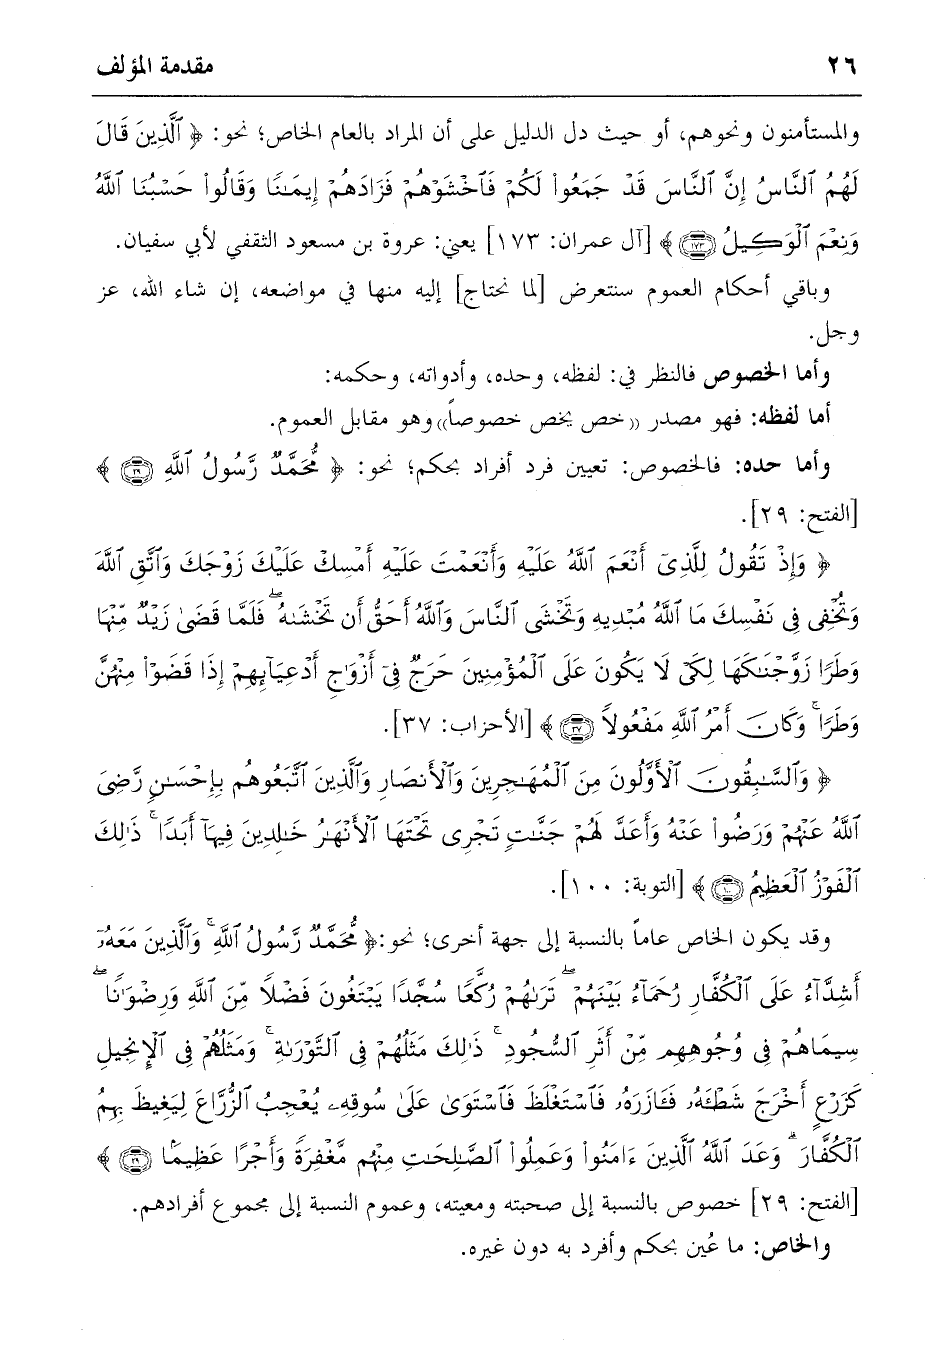 ٢٦ مقدمة المؤلف
والمستأمنون ونحوهم، أو حيث دل الدليل على أن المراد بالعام الخاص؛ نحو: ﴿ ٱلَّذِينَ قَالَ
لَهُمُ ٱلنَّاسُ إِنَّ ٱلنَّاسَ قَدْ جَمَعُوا۟ لَكُمْ فَٱخْشَوْهُمْ فَزَادَهُمْ إِيمَـٰنًا وَقَالُوا۟ حَسْبُنَا ٱللَّهُ
وَنِعْمَ ٱلْوَكِيلُ ١٧٣ ﴾ [آل عمران: ١٧٣] يعني: عروة بن مسعود الثقفي لأبي سفيان.
وباقي أحكام العموم سنتعرض [لما نحتاج] إليه منها في مواضعه، إن شاء الله، عز
وجل.
وأما الخصوص فالنظر في: لفظه، وحده، وأدواته، وحكمه:
أما لفظه: فهو مصدر «خص يخص خصوصاً» وهو مقابل العموم.
وأما حده: فالخصوص: تعيين فرد أفراد بحكم؛ نحو: ﴿ مُّحَمَّدٌ رَّسُولُ ٱللَّهِ ٢٩ ﴾
[الفتح: ٢٩].
﴿ وَإِذْ تَقُولُ لِلَّذِىٓ أَنْعَمَ ٱللَّهُ عَلَيْهِ وَأَنْعَمْتَ عَلَيْهِ أَمْسِكْ عَلَيْكَ زَوْجَكَ وَٱتَّقِ ٱللَّهَ
وَتُخْفِى فِى نَفْسِكَ مَا ٱللَّهُ مُبْدِيهِ وَتَخْشَى ٱلنَّاسَ وَٱللَّهُ أَحَقُّ أَن تَخْشَىٰهُ ۖ فَلَمَّا قَضَىٰ زَيْدٌ مِّنْهَا
وَطَرًا زَوَّجْنَـٰكَهَا لِكَىْ لَا يَكُونَ عَلَى ٱلْمُؤْمِنِينَ حَرَجٌ فِىٓ أَزْوَٰجِ أَدْعِيَآئِهِمْ إِذَا قَضَوْا۟ مِنْهُنَّ
وَطَرًا ۚ وَكَانَ أَمْرُ ٱللَّهِ مَفْعُولًا ٣٧ ﴾ [الأحزاب: ٣٧].
﴿ وَٱلسَّـٰبِقُونَ ٱلْأَوَّلُونَ مِنَ ٱلْمُهَـٰجِرِينَ وَٱلْأَنصَارِ وَٱلَّذِينَ ٱتَّبَعُوهُم بِإِحْسَـٰنٍ رَّضِىَ
ٱللَّهُ عَنْهُمْ وَرَضُوا۟ عَنْهُ وَأَعَدَّ لَهُمْ جَنَّـٰتٍ تَجْرِى تَحْتَهَا ٱلْأَنْهَـٰرُ خَـٰلِدِينَ فِيهَآ أَبَدًا ۚ ذَٰلِكَ
ٱلْفَوْزُ ٱلْعَظِيمُ ١٠٠ ﴾ [التوبة: ١٠٠].
وقد يكون الخاص عاماً بالنسبة إلى جهة أخرى؛ نحو: ﴿ مُّحَمَّدٌ رَّسُولُ ٱللَّهِ ۚ وَٱلَّذِينَ مَعَهُۥٓ
أَشِدَّآءُ عَلَى ٱلْكُفَّارِ رُحَمَآءُ بَيْنَهُمْ ۖ تَرَىٰهُمْ رُكَّعًا سُجَّدًا يَبْتَغُونَ فَضْلًا مِّنَ ٱللَّهِ وَرِضْوَٰنًا ۖ
سِيمَاهُمْ فِى وُجُوهِهِم مِّنْ أَثَرِ ٱلسُّجُودِ ۚ ذَٰلِكَ مَثَلُهُمْ فِى ٱلتَّوْرَىٰةِ ۚ وَمَثَلُهُمْ فِى ٱلْإِنجِيلِ
كَزَرْعٍ أَخْرَجَ شَطْـَٔهُۥ فَـَٔازَرَهُۥ فَٱسْتَغْلَظَ فَٱسْتَوَىٰ عَلَىٰ سُوقِهِۦ يُعْجِبُ ٱلزُّرَّاعَ لِيَغِيظَ بِهِمُ
ٱلْكُفَّارَ ۗ وَعَدَ ٱللَّهُ ٱلَّذِينَ ءَامَنُوا۟ وَعَمِلُوا۟ ٱلصَّـٰلِحَـٰتِ مِنْهُم مَّغْفِرَةً وَأَجْرًا عَظِيمًۢا ٢٩ ﴾
[الفتح: ٢٩] خصوص بالنسبة إلى صحبته ومعيته، وعموم النسبة إلى مجموع أفرادهم.
والخاص: ما عُين بحكم وأفرد به دون غيره.